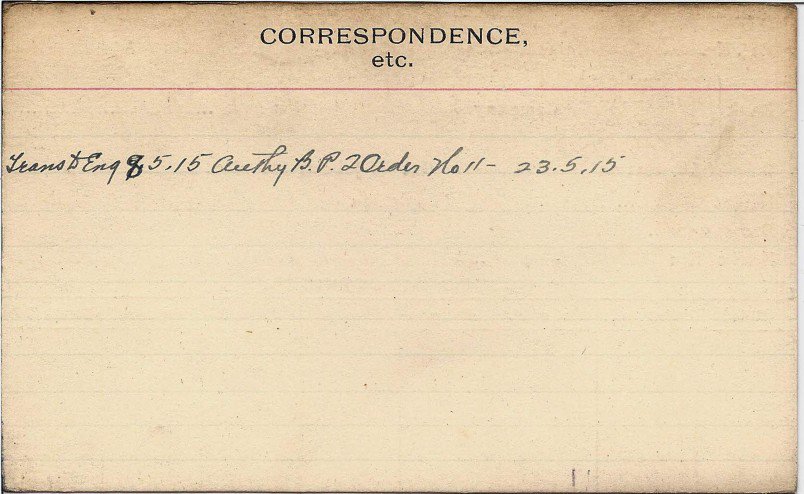 CORRESPONDENCE,
etc.
Trans to Eng 8 5.15 Authy B.P. 2 Order No 11 - 23.5.15